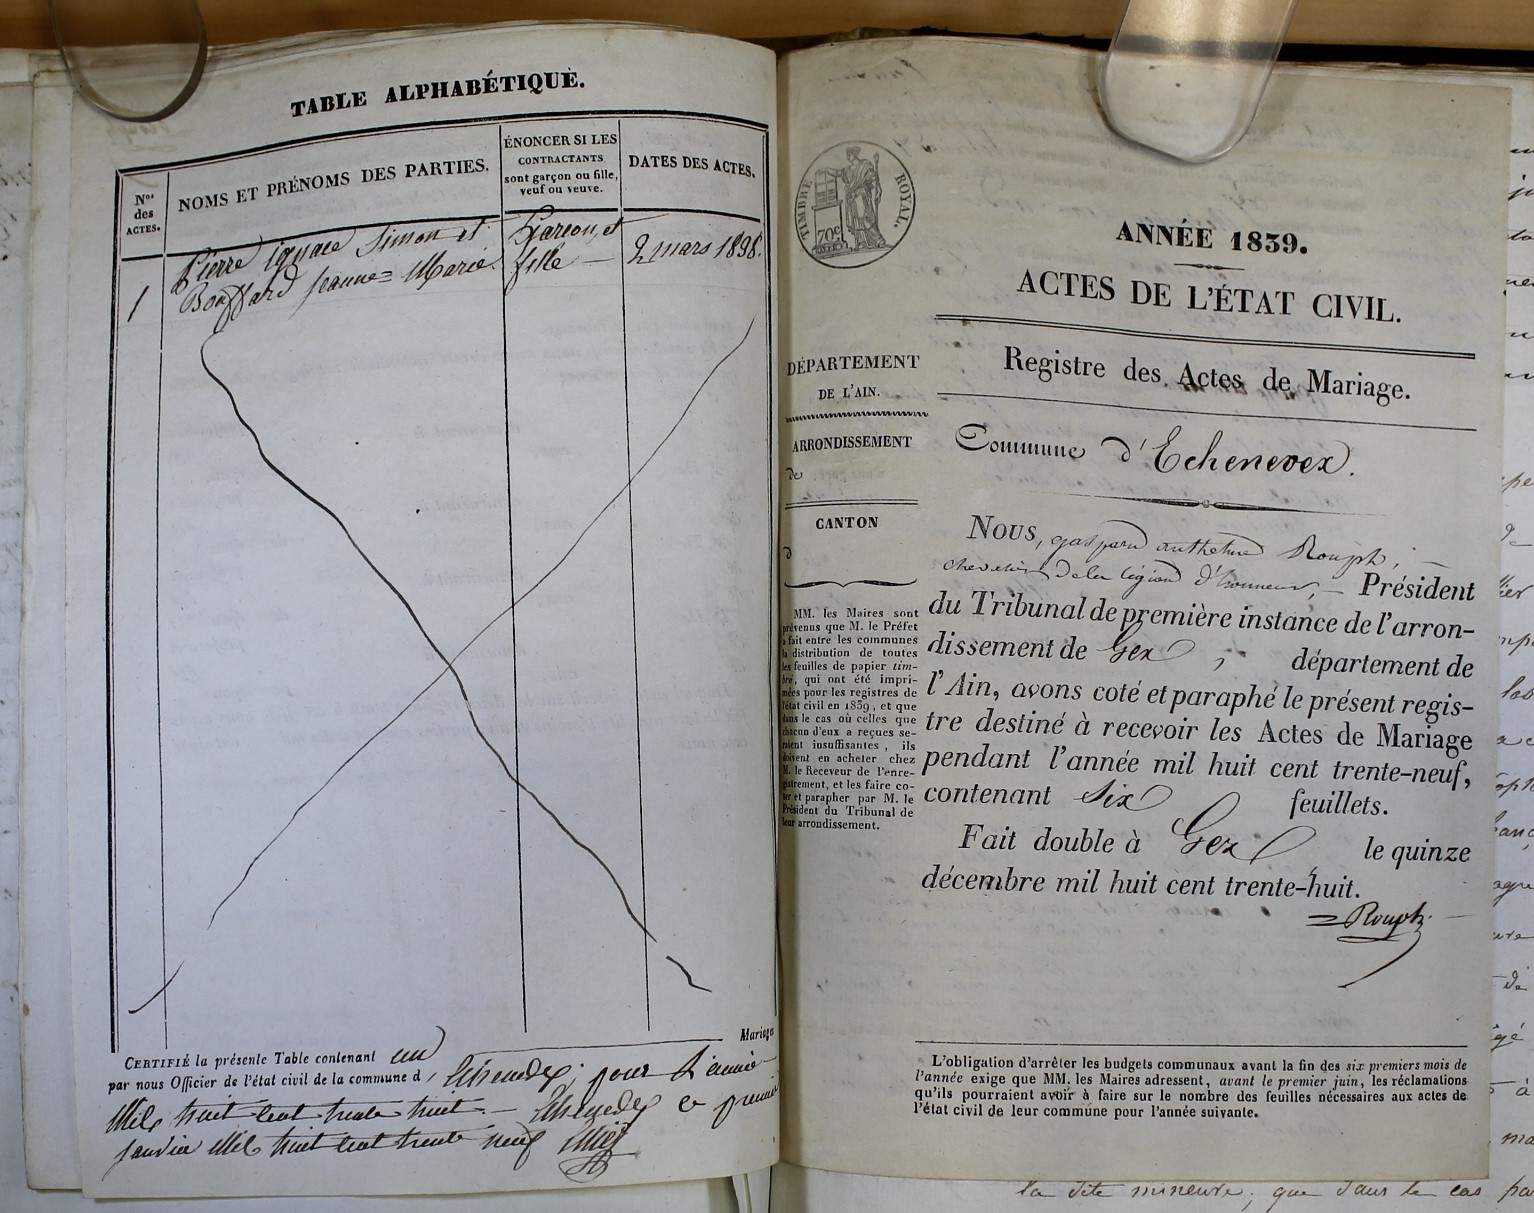 TABLE ALPHABÉTIQUE.
Nos des ACTES.
NOMS ET PRÉNOMS DES PARTIES.
ÉNONCER SI LES
CONTRACTANTS
sont garçon ou fille,
veuf ou veuve.
DATES DES ACTES.
1
Pierre ignace Simon et
Bouffard jeanne=Marie.
Garcon, et
fille —
2 mars 1838.
Mariages
CERTIFIÉ la présente Table contenant un
par nous Officier de l'état civil de la commune d, Echenevex, pour l'année
Mil huit cent trente huit. — Echenevex ce premier
janvier Mil huit cent trente neuf
TIMBRE ROYAL.
70c
ANNÉE 1839.
ACTES DE L'ÉTAT CIVIL.
Registre des Actes de Mariage.
Commune d'Echenevex.
DÉPARTEMENT
DE L'AIN.
ARRONDISSEMENT
de
CANTON
d
MM. les Maires sont
prévenus que M. le Préfet
a fait entre les communes
la distribution de toutes
les feuilles de papier tim-
bré, qui ont été impri-
mées pour les registres de
l'état civil en 1839, et que
dans le cas où celles que
chacun d'eux a reçues se-
raient insuffisantes, ils
doivent en acheter chez
M. le Receveur de l'enre-
gistrement, et les faire co-
ter et parapher par M. le
Président du Tribunal de
leur arrondissement.
Nous, gaspard anthelme Rouph, —
chevalier de la légion d'honneur, — Président
du Tribunal de première instance de l'arron-
dissement de Gex, département de
l'Ain, avons coté et paraphé le présent regis-
tre destiné à recevoir les Actes de Mariage
pendant l'année mil huit cent trente-neuf,
contenant six feuillets.
Fait double à Gex le quinze
décembre mil huit cent trente-huit.
Rouph
L'obligation d'arrêter les budgets communaux avant la fin des six premiers mois de
l'année exige que MM. les Maires adressent, avant le premier juin, les réclamations
qu'ils pourraient avoir à faire sur le nombre des feuilles nécessaires aux actes de
l'état civil de leur commune pour l'année suivante.
la dite mineure, que dans le cas